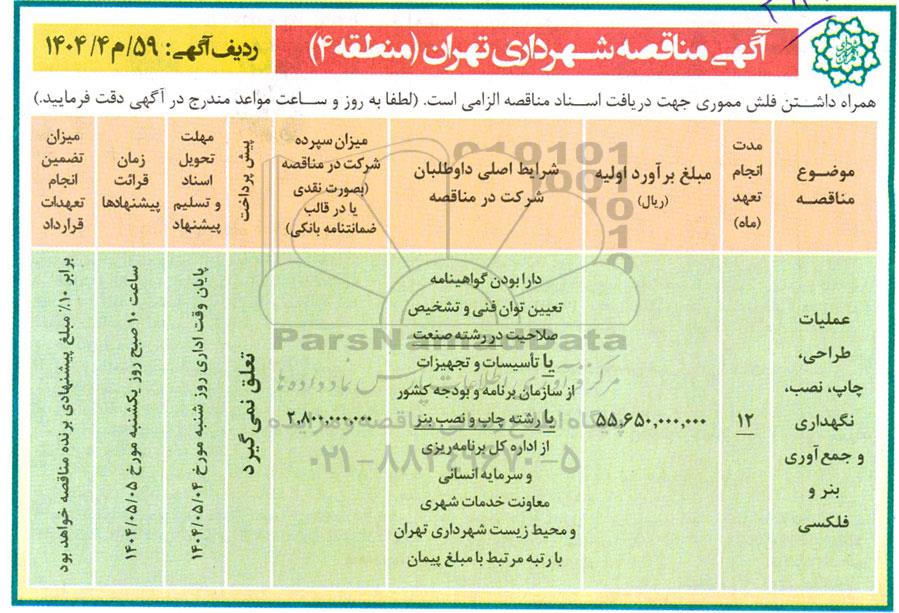 آگهی مناقصه شهرداری تهران (منطقه ۴)
ردیف آگهی: ۵۹/م۴/۱۴۰۴
همراه داشتن فلش مموری جهت دریافت اسناد مناقصه الزامی است. (لطفا به روز و ساعت مواعد مندرج در آگهی دقت فرمایید.)
موضوع
مناقصه
مدت
انجام
تعهد
(ماه)
مبلغ برآورد اولیه
(ریال)
شرایط اصلی داوطلبان
شرکت در مناقصه
میزان سپرده
شرکت در مناقصه
(بصورت نقدی
یا در قالب
ضمانتنامه بانکی)
پیش پرداخت
مهلت
تحویل
اسناد
و تسلیم
پیشنهاد
زمان
قرائت
پیشنهادها
میزان
تضمین
انجام
تعهدات
قرارداد
عملیات
طراحی،
چاپ، نصب،
نگهداری
و جمع‌آوری
بنر و
فلکسی
۱۲
۵۵,۶۵۰,۰۰۰,۰۰۰
دارا بودن گواهینامه
تعیین توان فنی و تشخیص
صلاحیت در رشته صنعت
یا تأسیسات و تجهیزات
از سازمان برنامه و بودجه کشور
یا رشته چاپ و نصب بنر
از اداره کل برنامه‌ریزی
و سرمایه انسانی
معاونت خدمات شهری
و محیط زیست شهرداری تهران
با رتبه مرتبط با مبلغ پیمان
۲,۸۰۰,۰۰۰,۰۰۰
تعلق نمی‌گیرد
پایان وقت اداری روز شنبه مورخ ۱۴۰۴/۰۵/۰۴
ساعت ۱۰ صبح روز یکشنبه مورخ ۱۴۰۴/۰۵/۰۵
برابر ۱۰٪ مبلغ پیشنهادی برنده مناقصه خواهد بود
ParsNamadData
۰۲۱-۸۸۳۴۹۶۷۰-۵